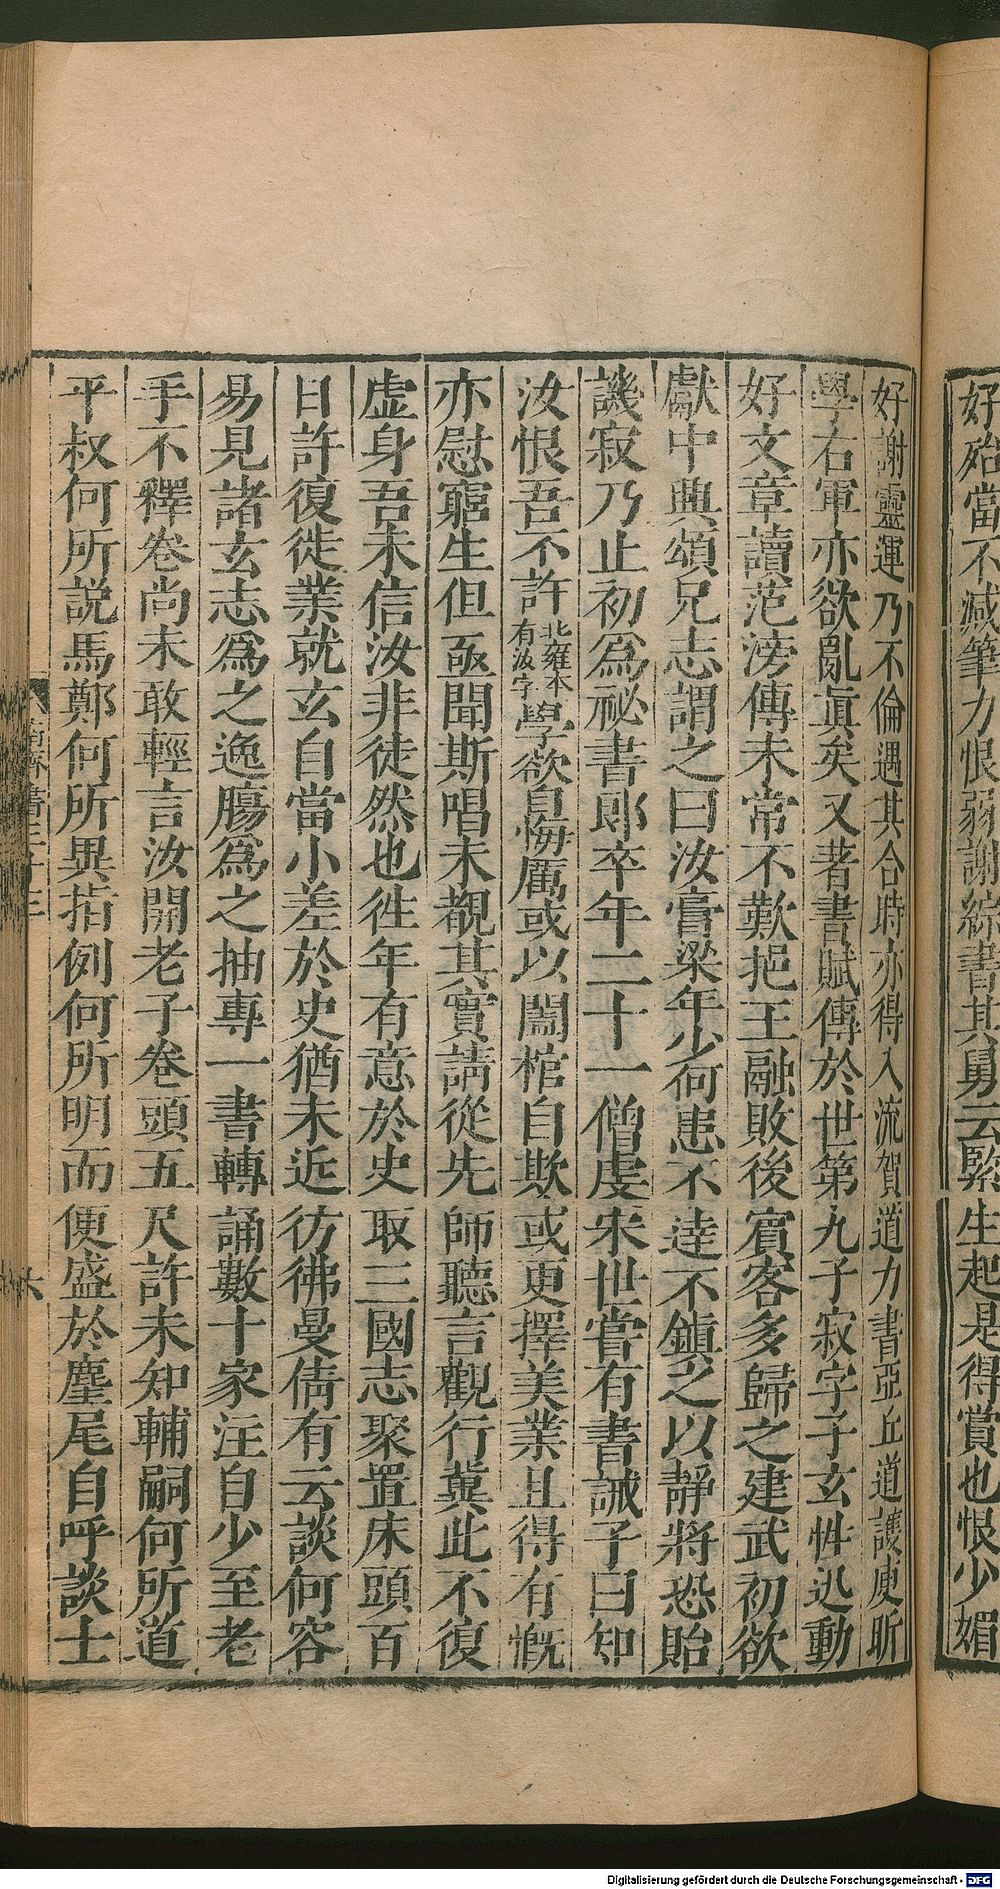 好殆當不減筆力恨弱謝綜書其舅云緊生起是得賞也恨少媚
好謝靈運乃不倫遇其合時亦得入流賀道力書亞丘道護庾昕
學右軍亦欲亂真矣又著書賦傳於世第九子寂字子玄性迅動
好文章讀范滂傳未常不歎挹王融敗後賓客多歸之建武初欲
獻中興頌兄志謂之曰汝膏梁年少何患不達不鎮之以靜將恐貽
譏寂乃止初為祕書郎卒年二十一僧虔宋世嘗有書誡子曰知
汝恨吾不許北雍本有汝字學欲自悔厲或以闔棺自欺或更擇美業且得有慨
亦慰窮生但亟聞斯唱未覩其實請從先師聽言觀行冀此不復
虛身吾未信汝非徒然也徃年有意於史取三國志聚置床頭百
日許復徙業就玄自當小差於史猶未近彷彿曼倩有云談何容
易見諸玄志為之逸膓為之抽專一書轉誦數十家注自少至老
手不釋卷尚未敢輕言汝開老子卷頭五尺許未知輔嗣何所道
平叔何所說馬鄭何所異指例何所明而便盛於麈尾自呼談士
南齊書三十三
六
Digitalisierung gefördert durch die Deutsche Forschungsgemeinschaft - DFG